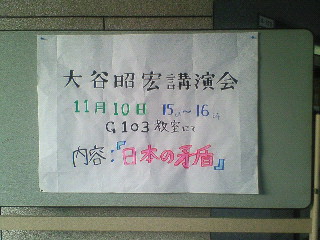 大谷昭宏講演会
11月10日 15時～16時
G103教室にて
内容:『日本の矛盾』